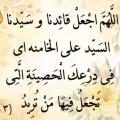 اَللّهُمَّ اجْعَلْ قائِدَنا وَ سَيِّدَنا
السَيِّد علی الخامنه ای
فی دِرْعِكَ الْحَصينَةِ الَّتی
تَجْعَلُ فيها مَنْ تُريدُ
(٣